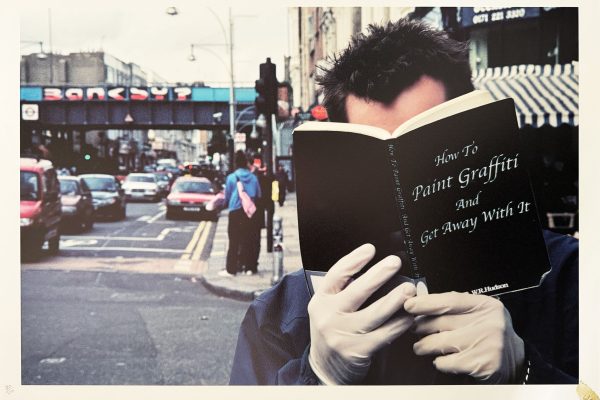 BANKSY?
0171 221 3320
How To Paint Graffiti And Get Away With It
How To
Paint Graffiti
And
Get Away With It
W.R.Hudson